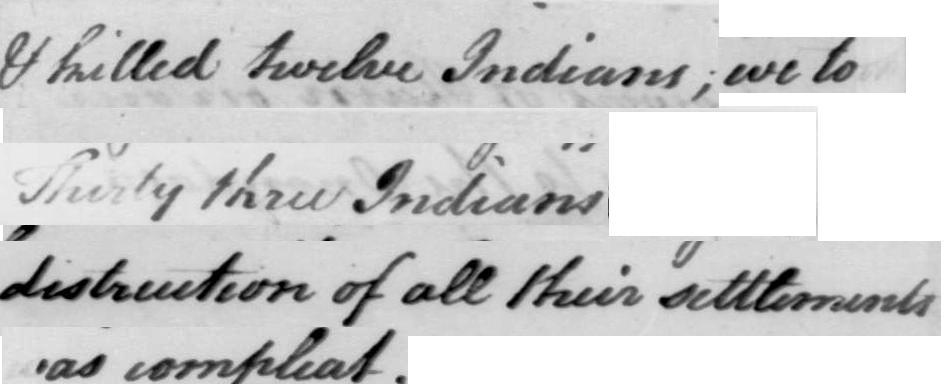 & killed twelve Indians; we to
Thirty three Indians
distruction of all their settlements
as compleat.